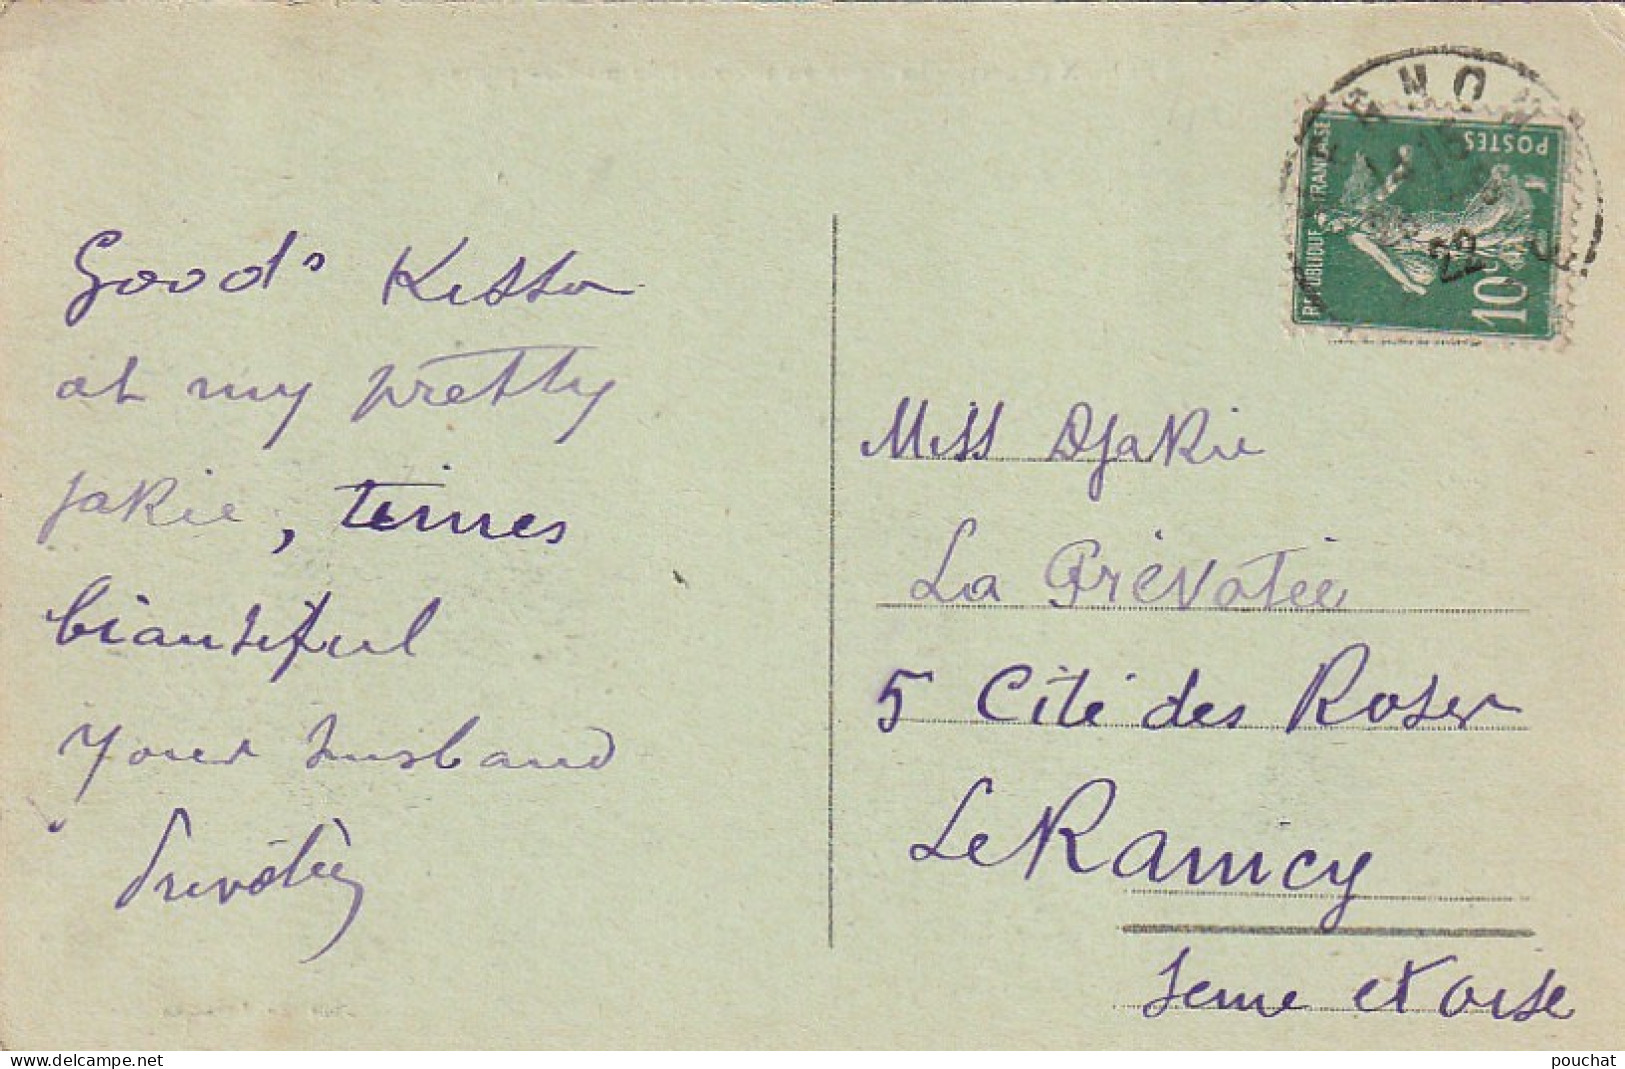 Good's Kisso
at my pretty
jakie, times
biautiful
your husband
Prevotée
Miss Djakie
La Prévotée
5 Cité des Roses
Le Raincy
Seine et Oise
RÉPUBLIQUE FRANÇAISE
POSTES
10c
22
www.delcampe.net
pouchat